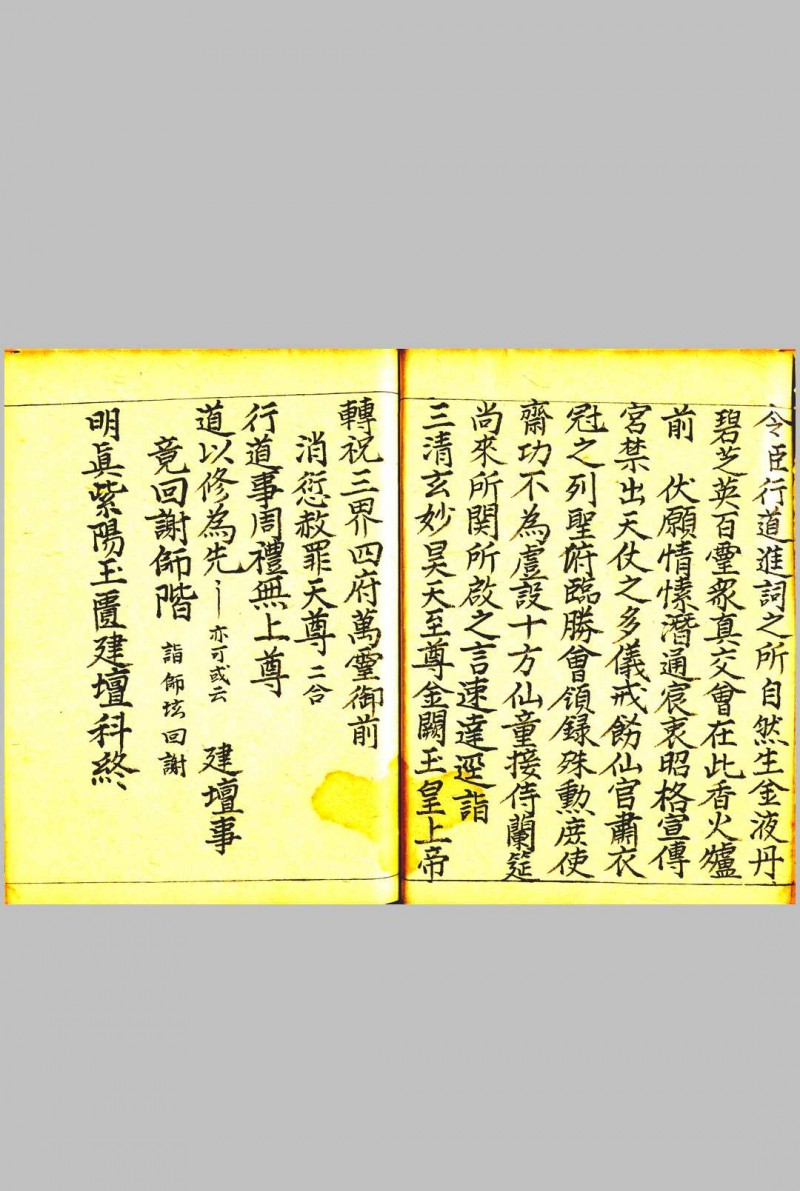 令臣行道進詞之所自然生金液丹
碧芝英百靈衆真交會在此香火爐
前　伏願情愫潛通宸衷昭格宣傳
宮禁出天仗之多儀戒飭仙官肅衣
冠之列聖俯臨勝會領錄殊勳庶使
齋功不為虛設十方仙童接侍蘭筵
尚來所関所啟之言速達逕詣
三清玄妙昊天至尊金闕玉皇上帝
轉祝三界四府萬靈御前
消愆赦罪天尊二合
行道事周禮無上尊
道以修為先亦可或云　建壇事
竟回謝師階　詣師垓回謝
明眞紫陽玉匱建壇科終